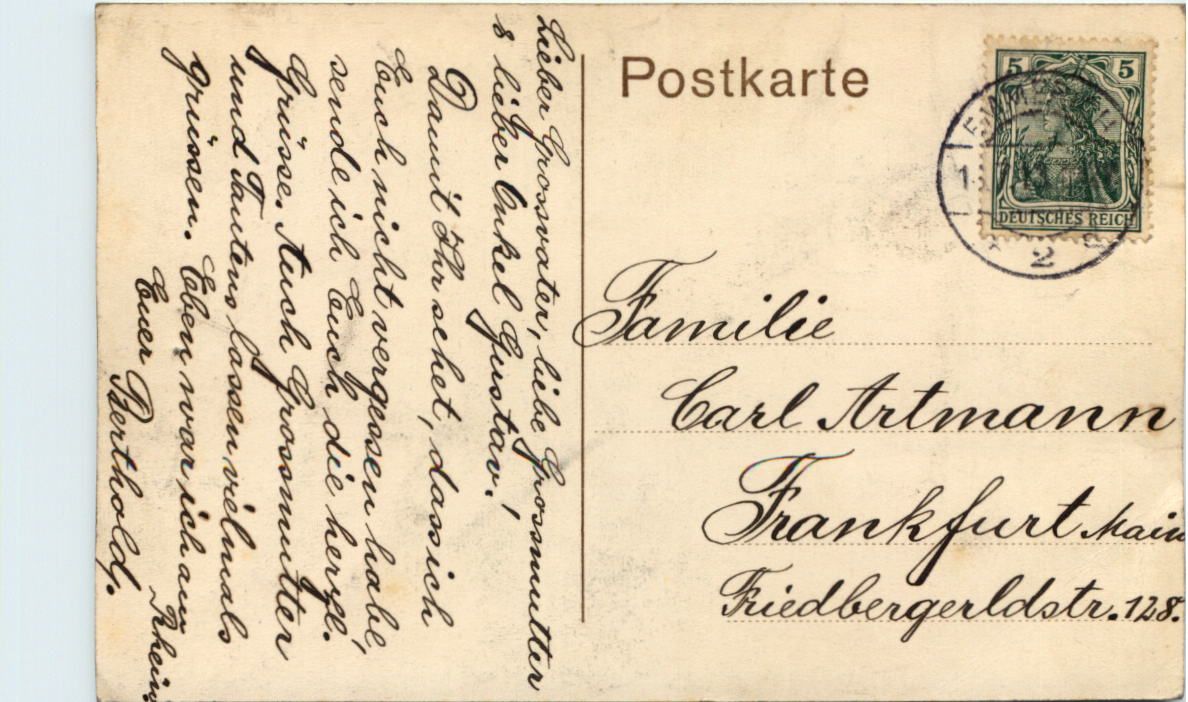 Postkarte
5 5
DEUTSCHES REICH
2
Familie
Carl Artmann
Frankfurt Main
Friedbergerldstr. 128.
Lieber Grossvater, liebe Grossmutter
& lieber Onkel Gustav!
Damit Ihr sehet, dass ich
Euch nicht vergessen habe,
sende ich Euch die herzl.
Grüsse. Auch Grossmutter
und Tantens lassen vielmals
grüssen. Eben war ich am Rhein.
Euer Berthold.